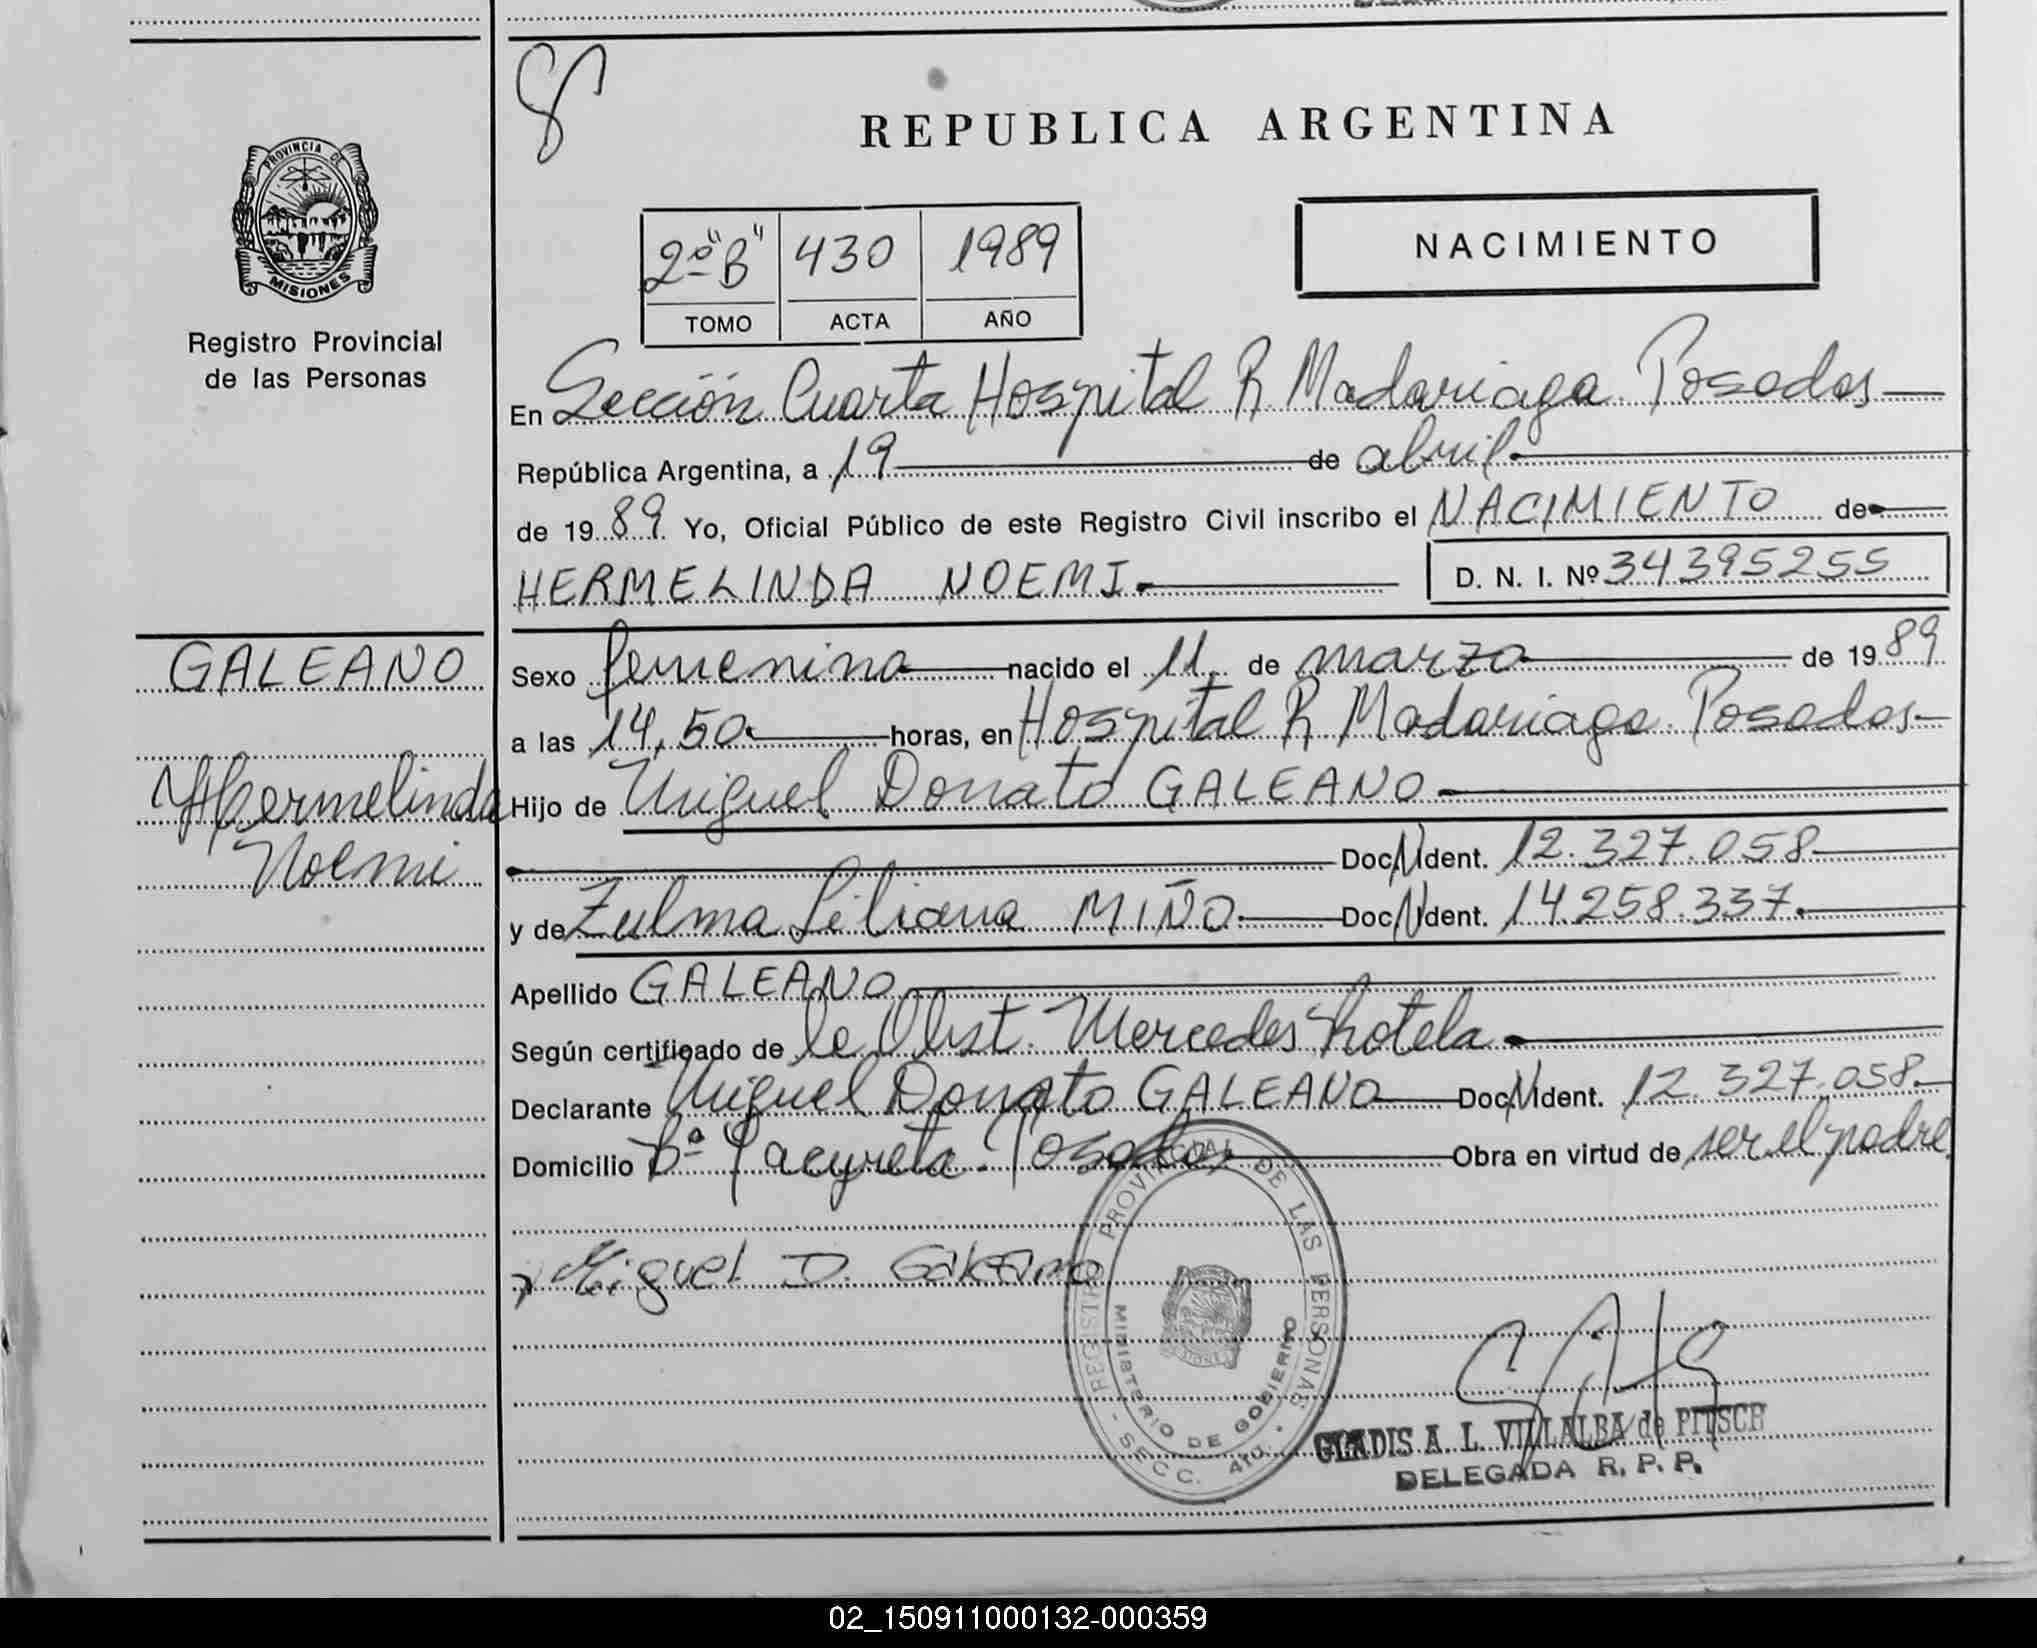 8
REPUBLICA ARGENTINA
PROVINCIA DE MISIONES
Registro Provincial
de las Personas
2º "B" 430 1989
TOMO ACTA AÑO
NACIMIENTO
En Sección Cuarta Hospital R. Madariaga. Posadas
República Argentina, a 19 de abril
de 1989 Yo, Oficial Público de este Registro Civil inscribo el NACIMIENTO de
HERMELINDA NOEMI D. N. I. Nº 34395255
GALEANO
Hermelinda
Noemi
Sexo femenino nacido el 11 de marzo de 1989
a las 14,50 horas, en Hospital R. Madariaga. Posadas
Hijo de Miguel Donato GALEANO
Doc. N. Ident. 12.327.058
y de Zulma Liliana MIÑO Doc. N. Ident. 14.258.337.
Apellido GALEANO
Según certificado de la Obst. Mercedes Rotela
Declarante Miguel Donato GALEANO Doc. N. Ident. 12.327.058
Domicilio Bº Yacyreta. Posadas Obra en virtud de ser el padre
Miguel D. Galeano
REGISTRO PROVINCIAL DE LAS PERSONAS
MINISTERIO DE GOBIERNO
- SECC. 4TA. -
GLADIS A. L. VILLALBA de PITSCH
DELEGADA R. P. P.
02_150911000132-000359